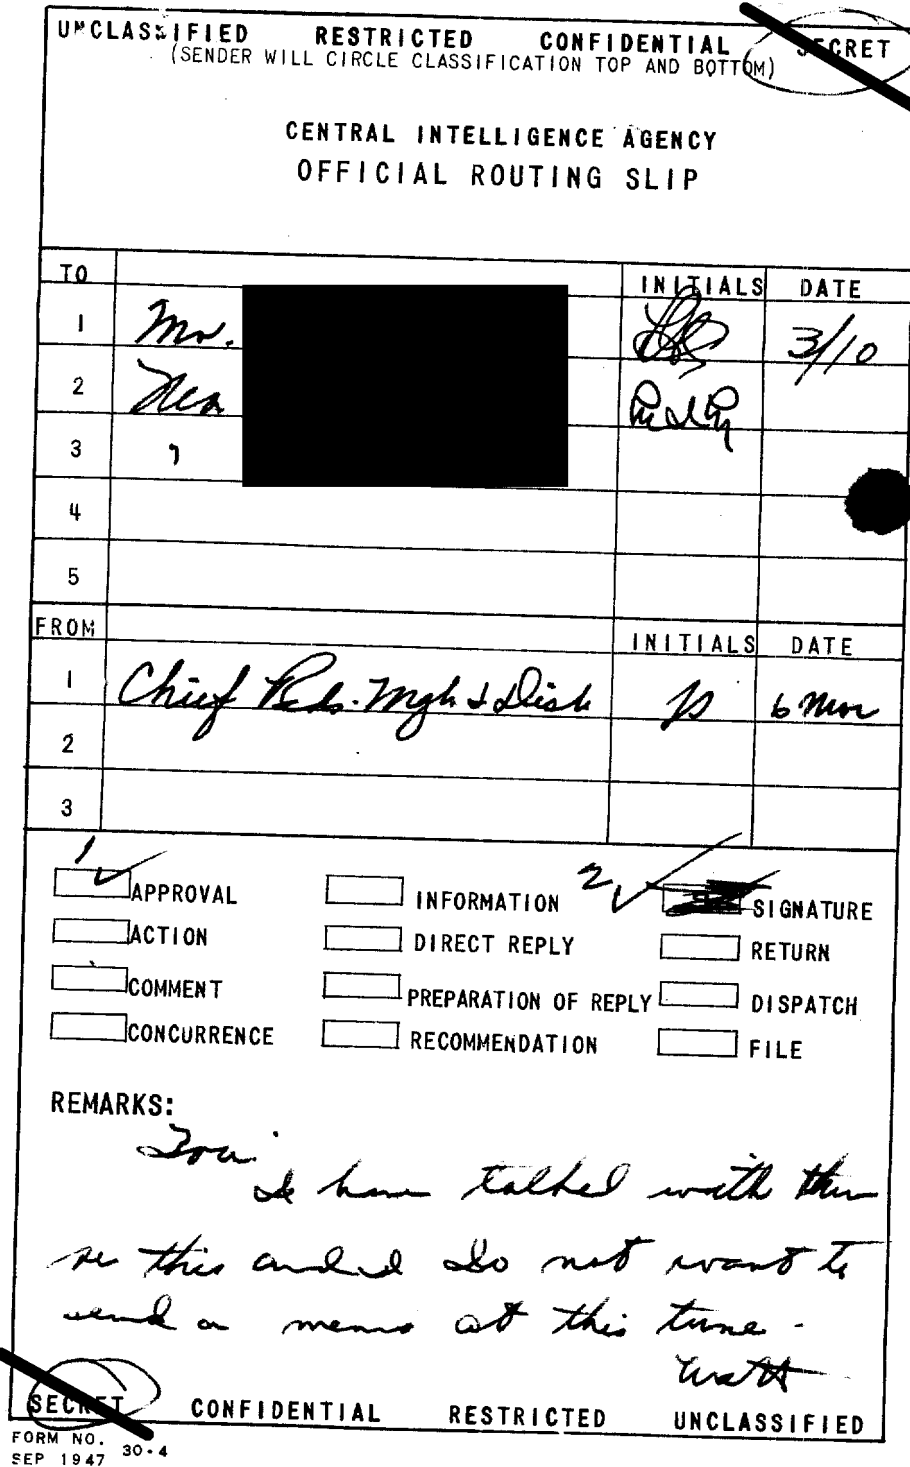 UNCLASSIFIED RESTRICTED CONFIDENTIAL SECRET
(SENDER WILL CIRCLE CLASSIFICATION TOP AND BOTTOM)
CENTRAL INTELLIGENCE AGENCY
OFFICIAL ROUTING SLIP
TO INITIALS DATE
1 Mr. 3/10
2
3
4
5
FROM INITIALS DATE
1 Chief Rds. Mgt & Dist 6 Mar
2
3
1 2
APPROVAL INFORMATION SIGNATURE
ACTION DIRECT REPLY RETURN
COMMENT PREPARATION OF REPLY DISPATCH
CONCURRENCE RECOMMENDATION FILE
REMARKS:
I have talked with them
re this and I do not want to
send a memo at this time.
Watt
SECRET CONFIDENTIAL RESTRICTED UNCLASSIFIED
FORM NO. 30-4
SEP 1947